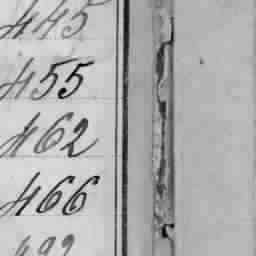 445
455
462
466
492